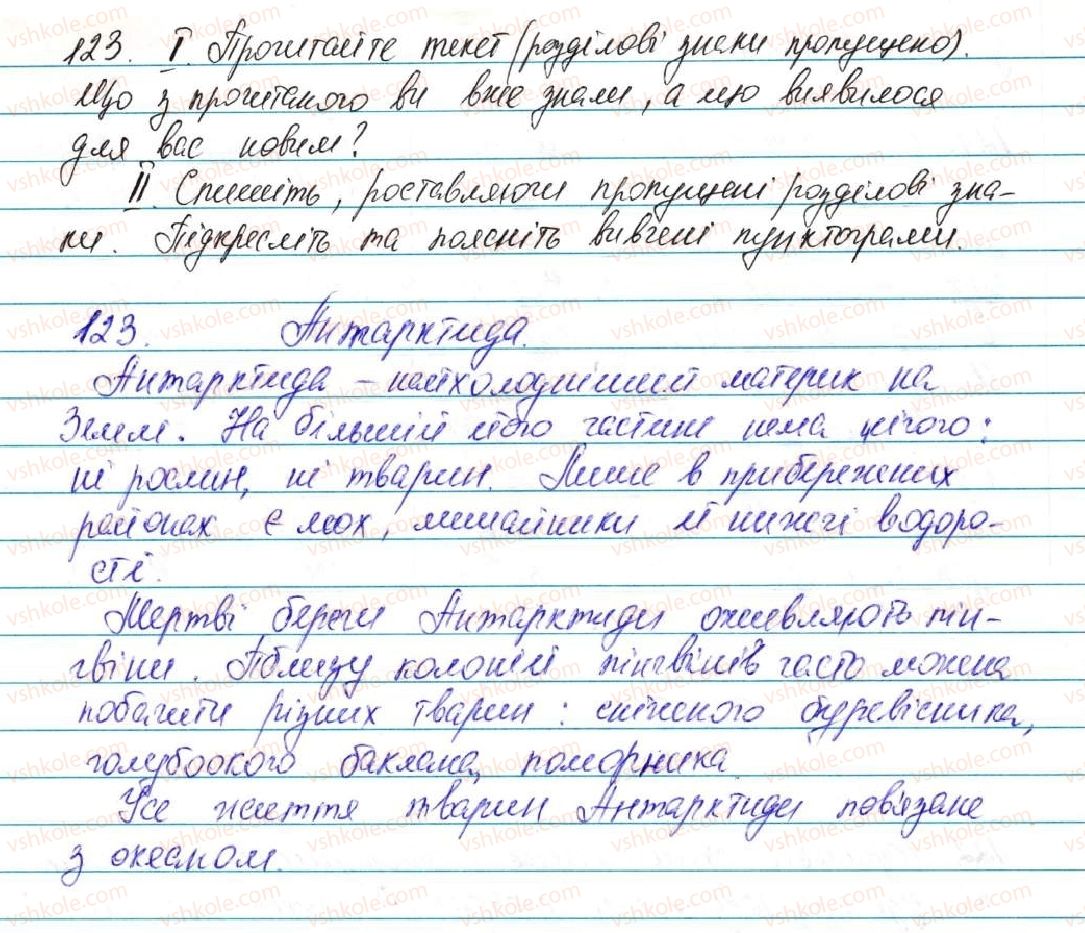 123. I. Прочитайте текст (розділові знаки пропущено).
Що з прочитаного ви вже знали, а що виявилося
для вас новим?
II. Спишіть, роставляючи пропущені розділові зна-
ки. Підкресліть та поясніть вивчені пунктограми.
123. Антарктида.
Антарктида – найхолодніший материк на
Землі. На більшій його частині нема нічого:
ні рослин, ні тварин. Лише в прибережних
районах є мох, лишайники й нижчі водоро-
сті.
Мертві береги Антарктиди оживляють пін-
гвіни. Поблизу колоній пінгвінів часто можна
побачити різних тварин: сніжного буревісника,
голубоокого баклана, поморника.
Усе життя тварин Антарктиди пов'язане
з океаном.